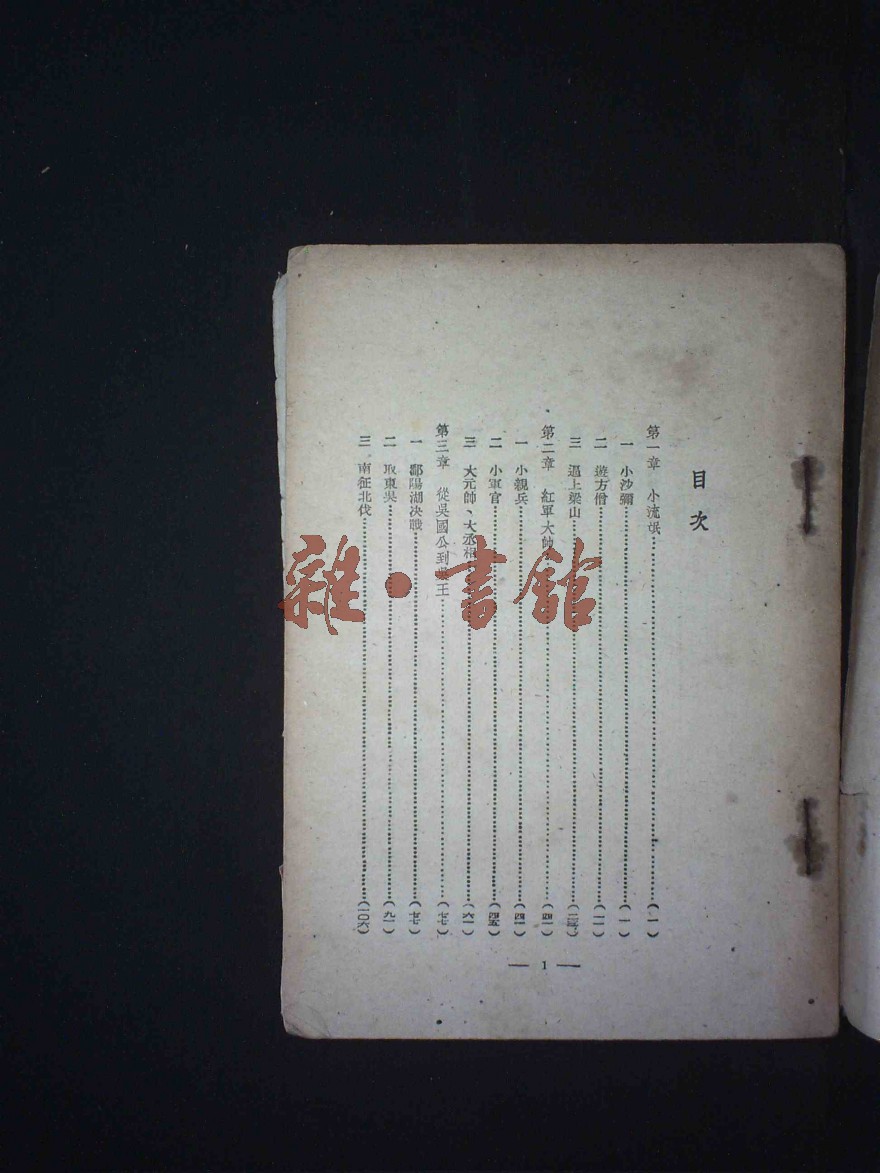 目次
第一章 小流氓……(一)
一 小沙彌……(一)
二 遊方僧……(一一)
三 逼上梁山……
第二章 紅軍大帥……(四一)
一 小親兵……(四一)
二 小軍官……(四五)
三 大元帥、大丞相……(六一)
第三章 從吳國公到吳王……(七七)
一 鄱陽湖決戰……(七七)
二 取東吳……(九一)
三 南征北伐……(一〇六)
— 1 —
雜·書館